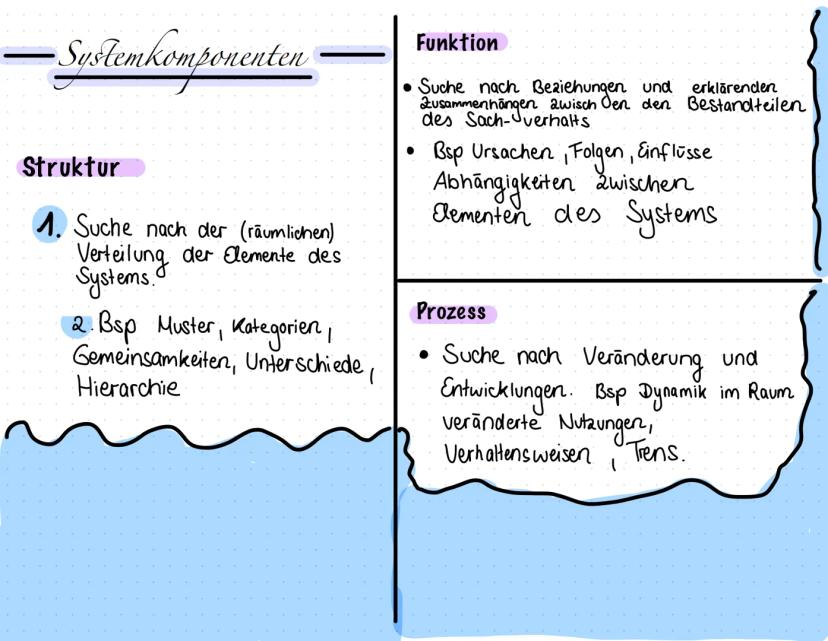 Systemkomponenten
Struktur
1. Suche nach der (räumlichen)
Verteilung der Elemente des
Systems.
2. Bsp Muster, Kategorien,
Gemeinsamkeiten, Unterschiede,
Hierarchie
Funktion
• Suche nach Beziehungen und erklärenden
Zusammenhängen zwisch en den Bestandteilen
des Sach-verhalts
• Bsp Ursachen, Folgen, Einflüsse
Abhängigkeiten zwischen
Elementen des Systems
Prozess
• Suche nach Veränderung und
Entwicklungen. Bsp Dynamik im Raum
veränderte Nutzungen,
Verhaltensweisen, Trens.